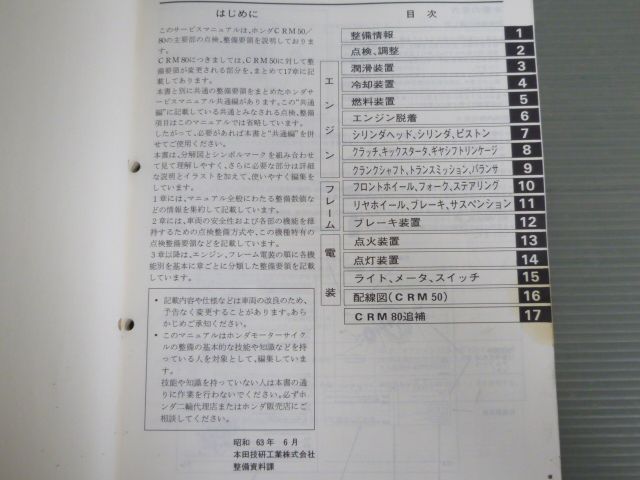 はじめに
このサービスマニュアルは、ホンダＣＲＭ50／
80の主要部の点検、整備要領を説明しておりま
す。
ＣＲＭ80につきましては、ＣＲＭ50に対して整
備要領が変更される部分を、まとめて17章に記
載してあります。
本書と別に共通の整備要領をまとめたホンダサ
ービスマニュアル共通編があります。この“共通
編”に記載している共通とみなされる点検、整備
項目はこのマニュアルでは省略しています。
したがって、必要があれば本書と“共通編”を併
せてご使用ください。
本書は、分解図とシンボルマークを組み合わせ
て見て理解しやすく、さらに必要な部分は詳細
な説明とイラストを加えて、使いやすく編集を
しています。
１章には、マニュアル全般にわたる整備数値な
どの情報を集約して記載しています。
２章には、車両の安全性および各部の機能を維
持するための点検整備方式や、この機種特有の
点検整備要領などを記載しています。
３章以降は、エンジン、フレーム電装の順に各機
能別を基本に章ごとに分類した整備要領を記載
しています。
・記載内容や仕様などは車両の改良のため、
予告なく変更することがあります。あら
かじめご承知ください。
・このマニュアルはホンダモーターサイク
ルの整備の基本的な技能や知識などを持
っている人を対象として、編集していま
す。
技能や知識を持っていない人は本書の通
りに作業を行わないでください。必ずホ
ンダ二輪代理店またはホンダ販売店にご
相談してください。
昭和 63年 6月
本田技研工業株式会社
整備資料課
目 次
整備情報 1
点検、調整 2
エンジン
潤滑装置 3
冷却装置 4
燃料装置 5
エンジン脱着 6
シリンダヘッド、シリンダ、ピストン 7
クラッチ、キックスタータ、ギヤシフトリンケージ 8
クランクシャフト、トランスミッション、バランサ 9
フレーム
フロントホイール、フォーク、ステアリング 10
リヤホイール、ブレーキ、サスペンション 11
ブレーキ装置 12
電装
点火装置 13
点灯装置 14
ライト、メータ、スイッチ 15
配線図（ＣＲＭ50） 16
ＣＲＭ80追補 17